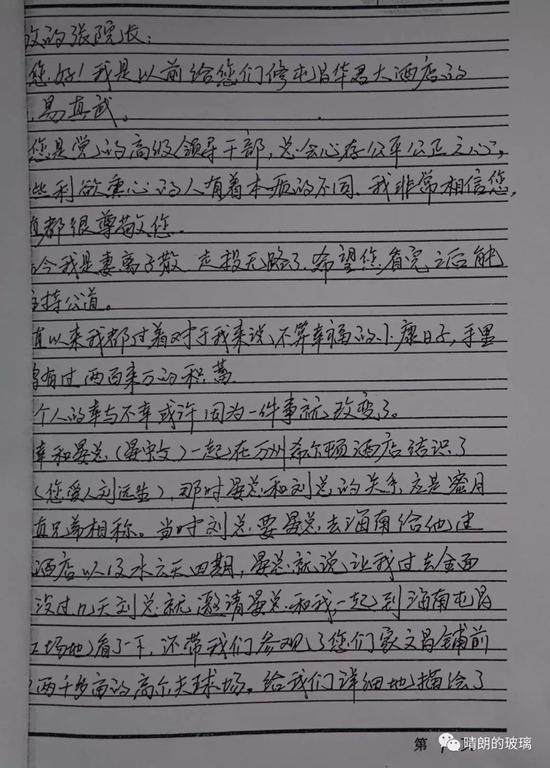 的张院长:
您好!我是以前给您们修屯昌华君大酒店的
易真武。
您是党的高级领导干部,总会心存公平公正之心,
些利欲熏心的人有着本质的不同.我非常相信您,
都很尊敬您.
今我是妻离子散 走投无路了.希望您看完之后能
持公道。
直以来我都过着对于我来说,不算幸福的小康日子,手里
有过两百来万的积蓄
个人的幸与不幸或许因为一件事就改变了。
幸和晏总(晏宋文)一起在万州希尔顿酒店结识了
(您爱人刘远生),那时晏总和刘总的关系应是蜜月
兄弟相称。当时刘总要晏总去海南给他建
酒店以及水云天四期,晏总就说让我过去全面
没过几天刘总就邀请晏总和我一起到海南屯昌
场地看了一下,还带我们参观了您们家文昌铺前
两千多亩的高尔夫球场。给我们详细地描绘了
第 1 页
晴朗的玻璃